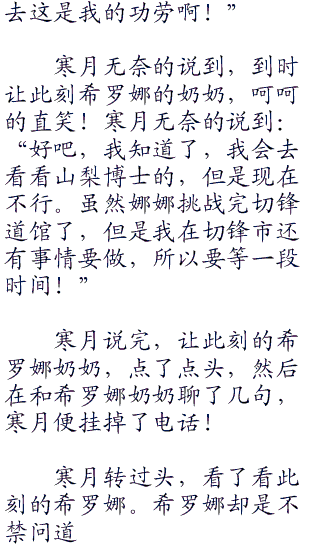 去这是我的功劳啊！”
寒月无奈的说到，到时
让此刻希罗娜的奶奶，呵呵
的直笑！寒月无奈的说到：
“好吧，我知道了，我会去
看看山梨博士的，但是现在
不行。虽然娜娜挑战完切锋
道馆了，但是我在切锋市还
有事情要做，所以要等一段
时间！”
寒月说完，让此刻的希
罗娜奶奶，点了点头，然后
在和希罗娜奶奶聊了几句，
寒月便挂掉了电话！
寒月转过头，看了看此
刻的希罗娜。希罗娜却是不
禁问道